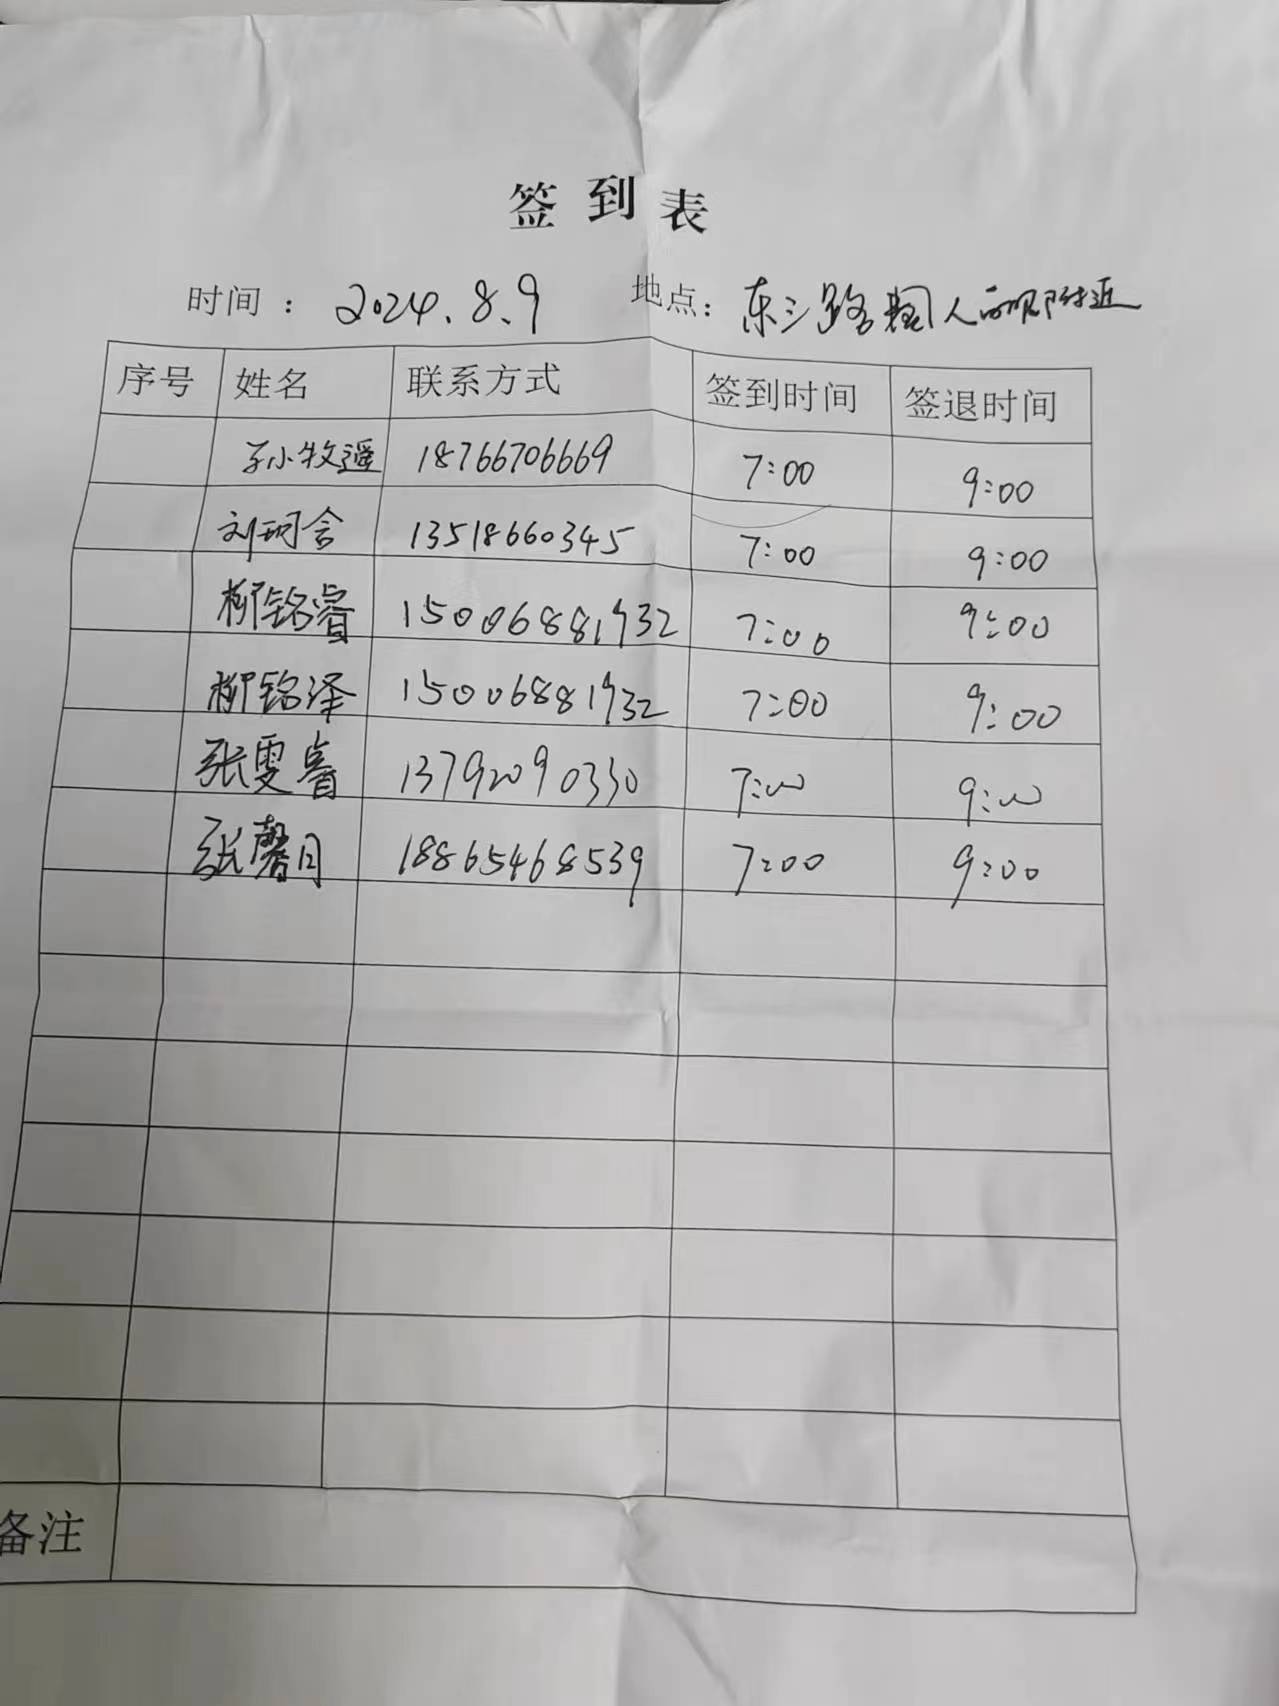 签到表
时间：2024.8.9 地点：东三路 人 附近
序号 姓名 联系方式 签到时间 签退时间
孙小牧遥 18766706669 7:00 9:00
刘珂含 13518660345 7:00 9:00
柳铭睿 15006881932 7:00 9:00
柳铭泽 15006881932 7:00 9:00
张雯睿 13792090330 7:00 9:00
张馨月 18865468539 7:00 9:00
备注